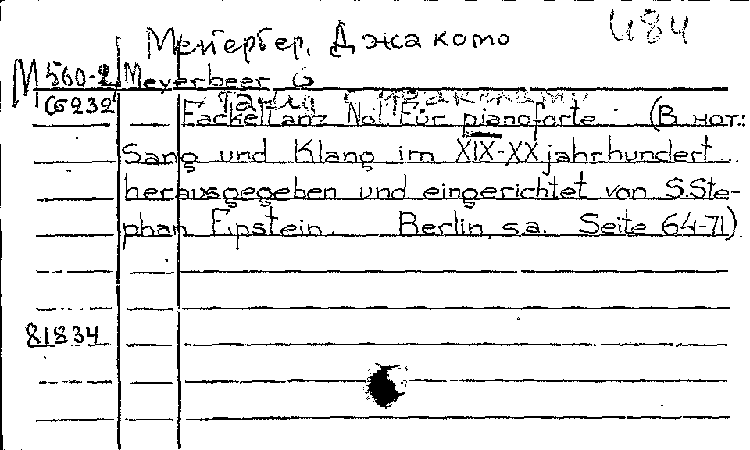 Мейербер, Джакомо 484
М 560-2 Meyerbeer G
С232 Fackeltanz No1 Für pianoforte (В нот.:
Sang und Klang im XIX-XX jahrhundert
herausgegeben und eingerichtet von S.Ste-
phan Epstein. Berlin, s.a. Seite 64-71)
81834